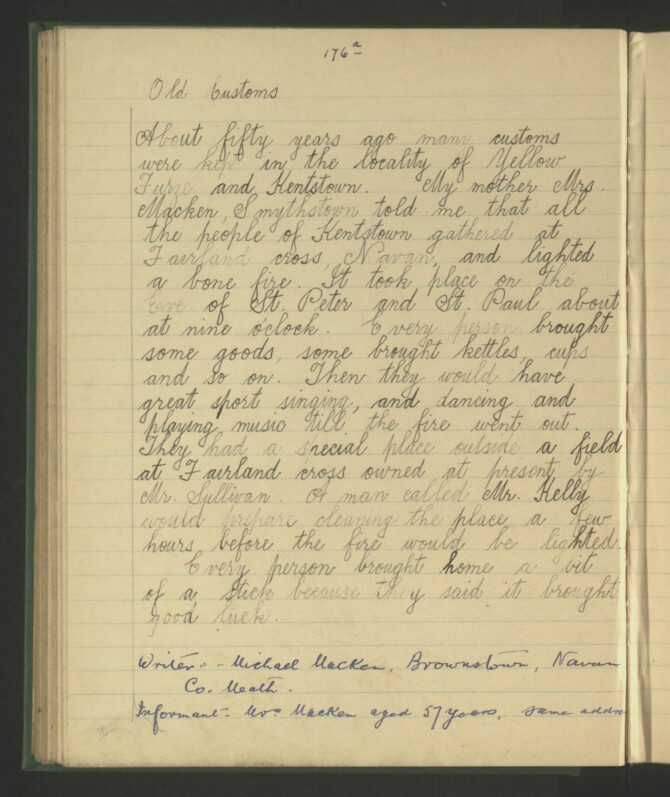 176a
Old Customs
About fifty years ago many customs
were kept in the locality of Yellow
Furze and Kentstown. My mother Mrs.
Macken, Smythstown told me that all
the people of Kentstown gathered at
Fairland cross, Navan, and lighted
a bone fire. It took place on the
Eve of St. Peter and St. Paul about
at nine o'clock. Every person brought
some goods, some brought kettles, cups
and so on. Then they would have
great sport singing, and dancing and
playing music till the fire went out.
They had a special place outside a field
at Fairland cross owned at present by
Mr. Sullivan. A man called Mr. Kelly
would prepare cleaning the place a few
hours before the fire would be lighted.
Every person brought home a bit
of a stick because they said it brought
good luck.
Writer - Michael Macken, Brownstown, Navan
Co. Meath.
Informant - Mrs Macken aged 57 years, same addre